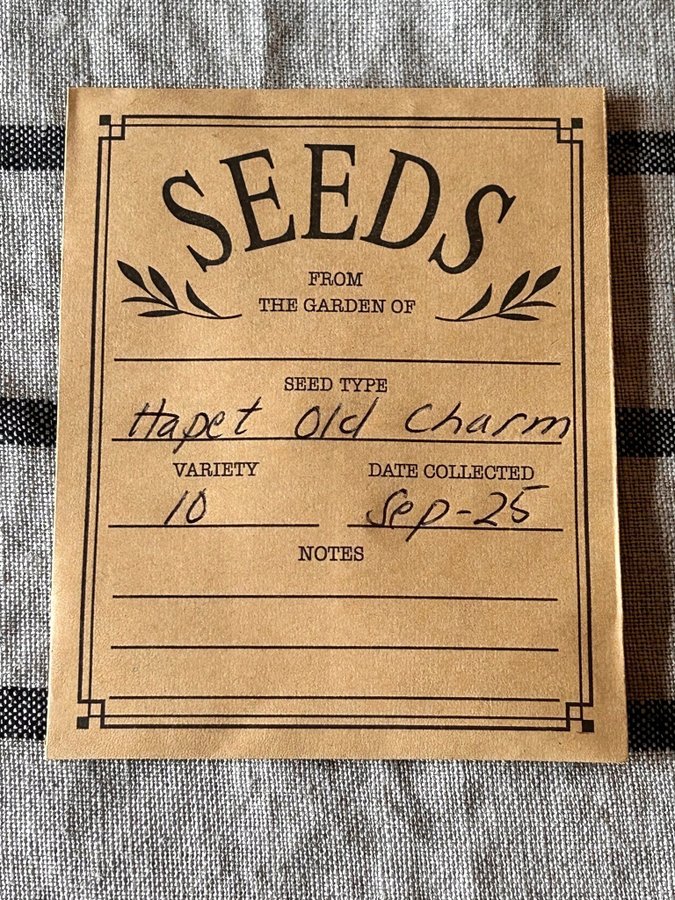 SEEDS
FROM
THE GARDEN OF
SEED TYPE
Hapet Old Charm
VARIETY
10
DATE COLLECTED
Sep-25
NOTES